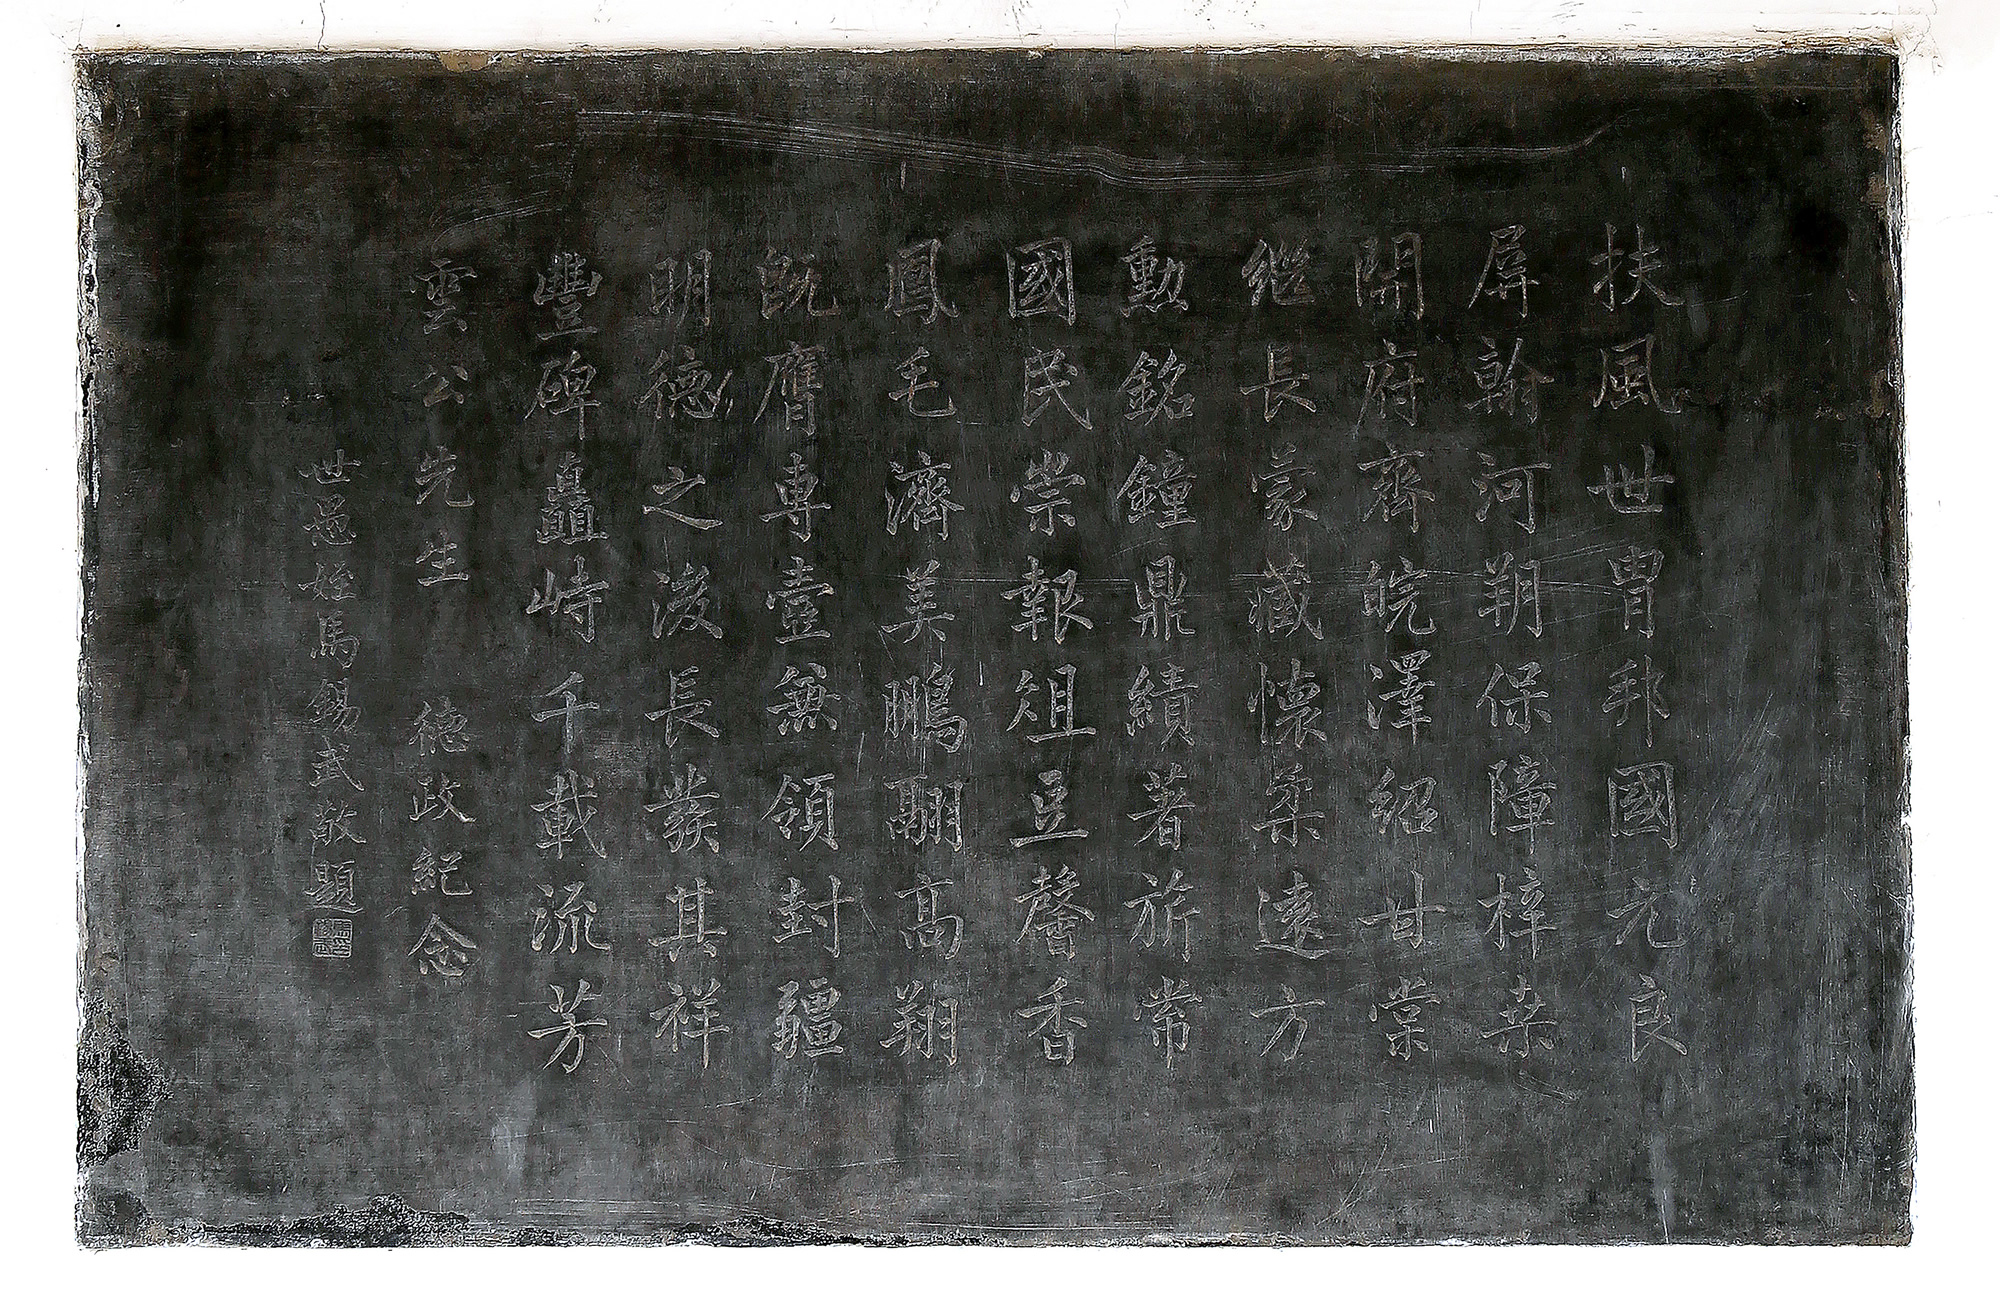 扶風世胄邦國元良
屏翰河朔保障梓桒
開府齊皖澤紹甘棠
繼長蒙藏懷柔遠方
勳銘鐘鼎績著旂常
國民崇報俎豆馨香
鳳毛濟美鵬翮高翔
既膺専壼無領封疆
明德之後長發其祥
豐碑矗峙千載流芳
雲公先生 德政紀念
世愚姪馬錫武敬題